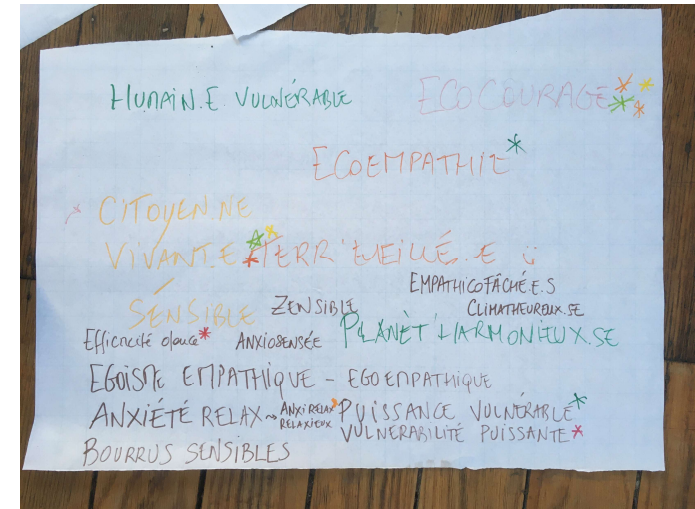 HUMAIN.E. VULNÉRABLE
ECOCOURAGE
ECOEMPATHIE
CITOYEN.NE
VIVANT.E
TERR'VEILLÉ.E
SENSIBLE
ZENSIBLE
EMPATHICOFÂCHÉ.E.S
CLIMATHEUREUX.SE
Efficacité douce
ANXIOSENSÉE
PLANÈT'HARMONIEUX.SE
EGOÏSME EMPATHIQUE - EGOEMPATHIQUE
ANXIÉTÉ RELAX ~ ANXIRELAX
RELAXIEUX
PUISSANCE VULNÉRABLE
VULNERABILITÉ PUISSANTE
BOURRUS SENSIBLES